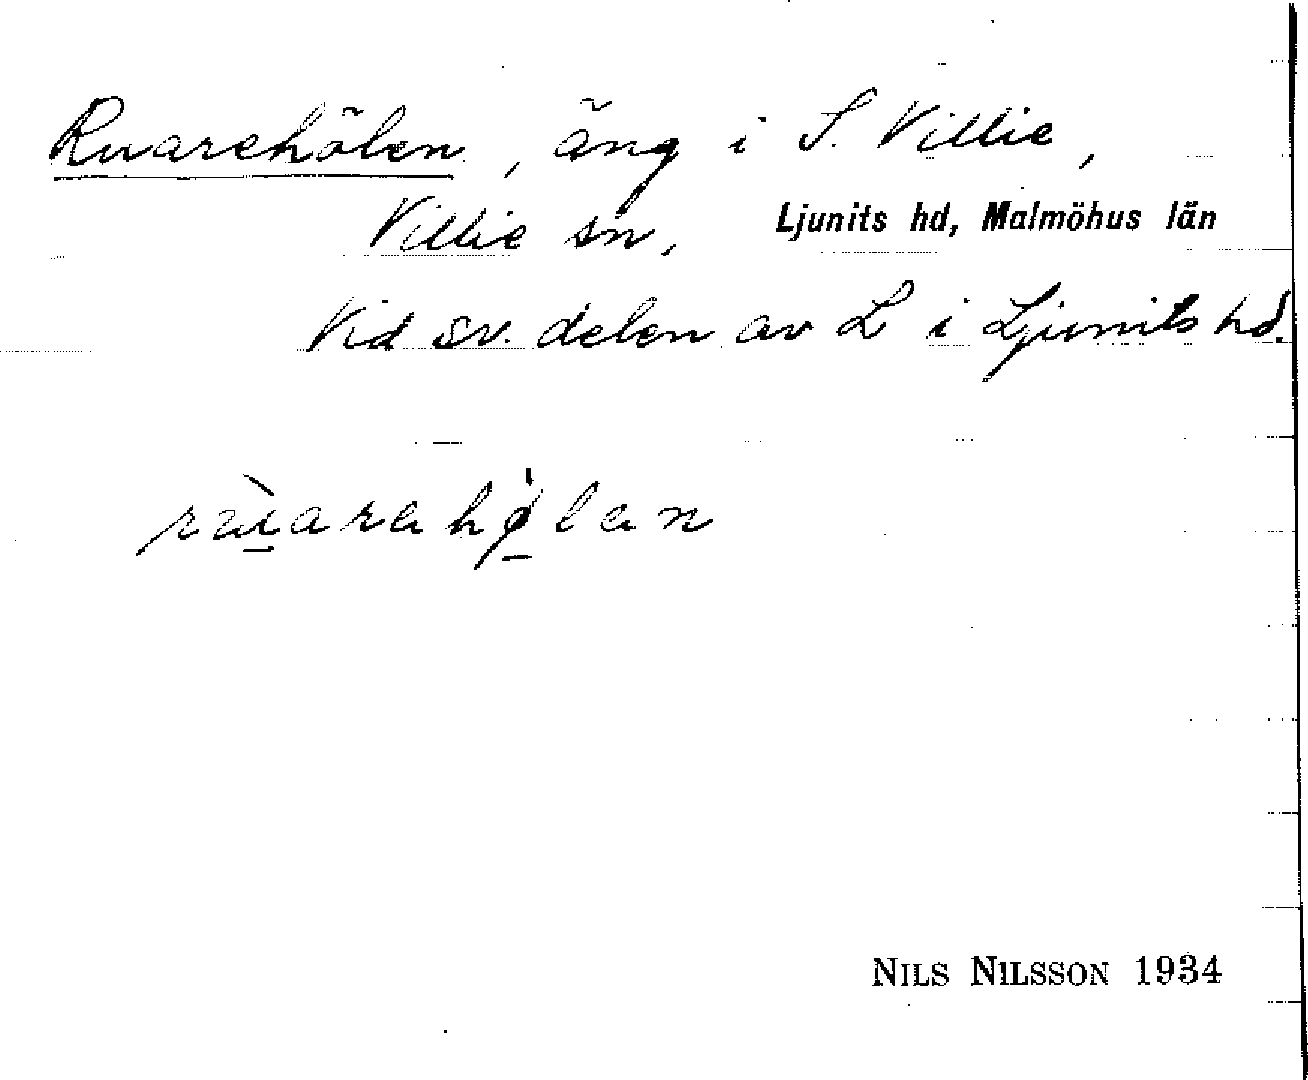 Ruarehölen, äng i S. Villie,
Villie sn, Ljunits hd, Malmöhus län
Vid sv. delen av L i Ljunits hd.
NILS NILSSON 1934